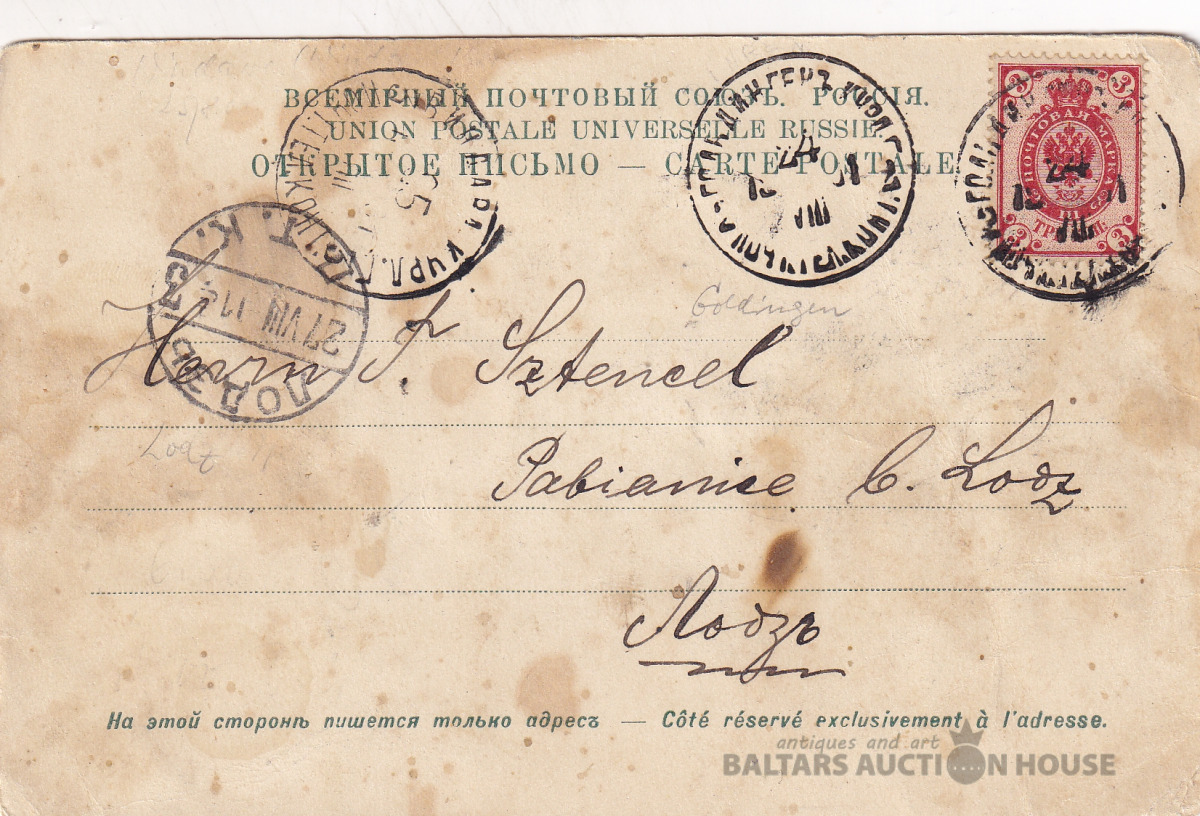 ВСЕМІРНЫЙ ПОЧТОВЫЙ СОЮЗЪ. РОССІЯ.
UNION POSTALE UNIVERSELLE RUSSIE
ОТКРЫТОЕ ПИСЬМО — CARTE POSTALE
3 3
ПОЧТОВАЯ МАРКА
3 3
ЛОДЗЬ
27 VIII
Goldingen
Herrn F. Sztencel
Lodz
Pabianice b. Lodz
Лодзь
На этой сторонѣ пишется только адресъ — Côté réservé exclusivement à l'adresse.
antiques and art
BALTARS AUCTION HOUSE